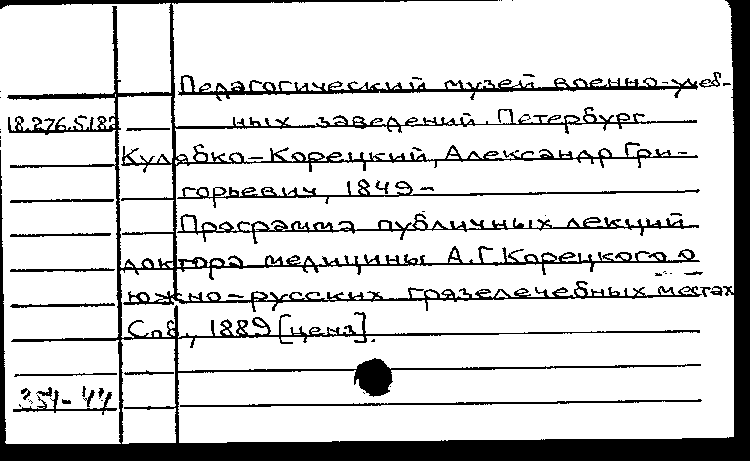 Педагогический музей военно-учеб-
18.276.5.182 ных заведений. Петербург
Кулябко-Корецкий, Александр Гри-
горьевич, 1849-
Программа публичных лекций
доктора медицины А.Г. Корецкого о
южно-русских грязелечебных местах
Спб., 1889 [ценз].
354-44